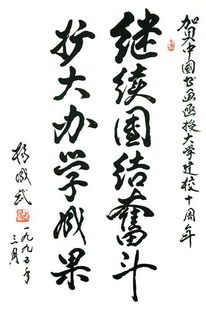 贺中國书画函授大学建校十周年
继续團结奮斗
扩大办学成果
杨成武
一九九五年
三月